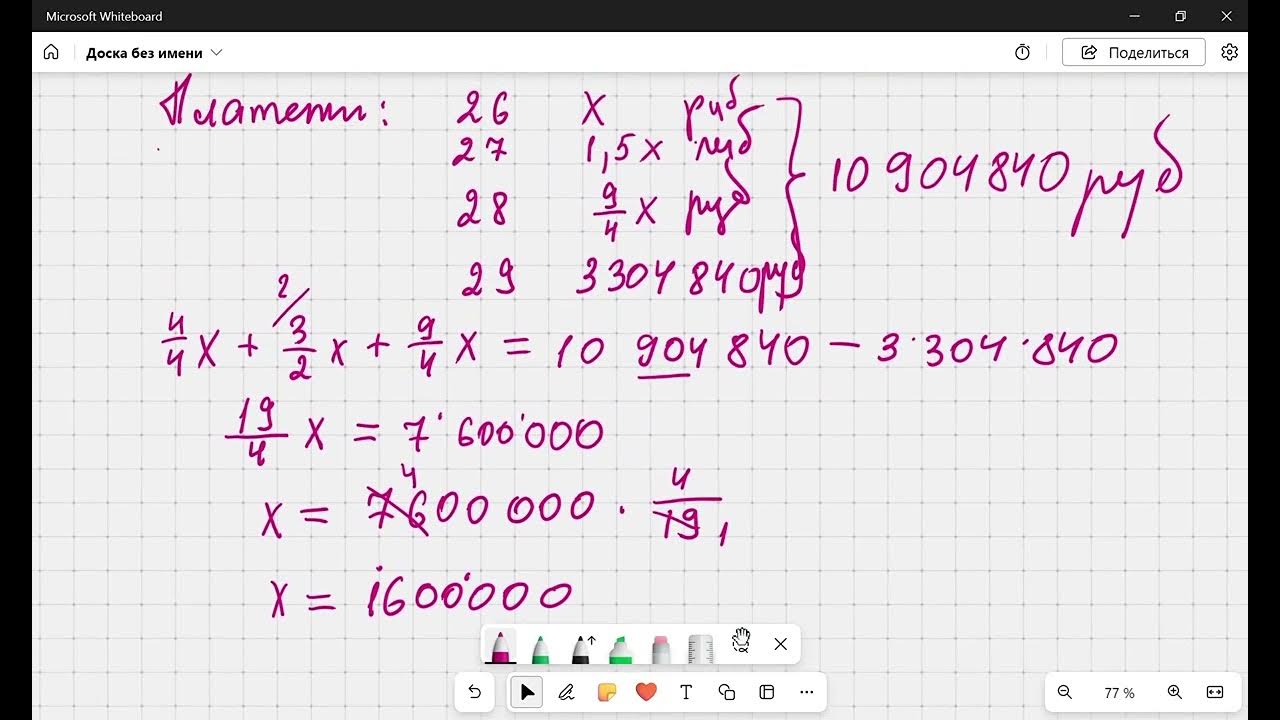 Microsoft Whiteboard
Доска без имени
Поделиться
Платежи: 26 X руб
27 1,5x руб
28 9/4 x руб
10 904 840 руб
29 3 304 840 руб
2
4/4 x + 3/2 x + 9/4 x = 10 904 840 − 3 304 840
19/4 x = 7 600 000
4
x = 7600 000 · 4/19 1
x = 1600000
77 %